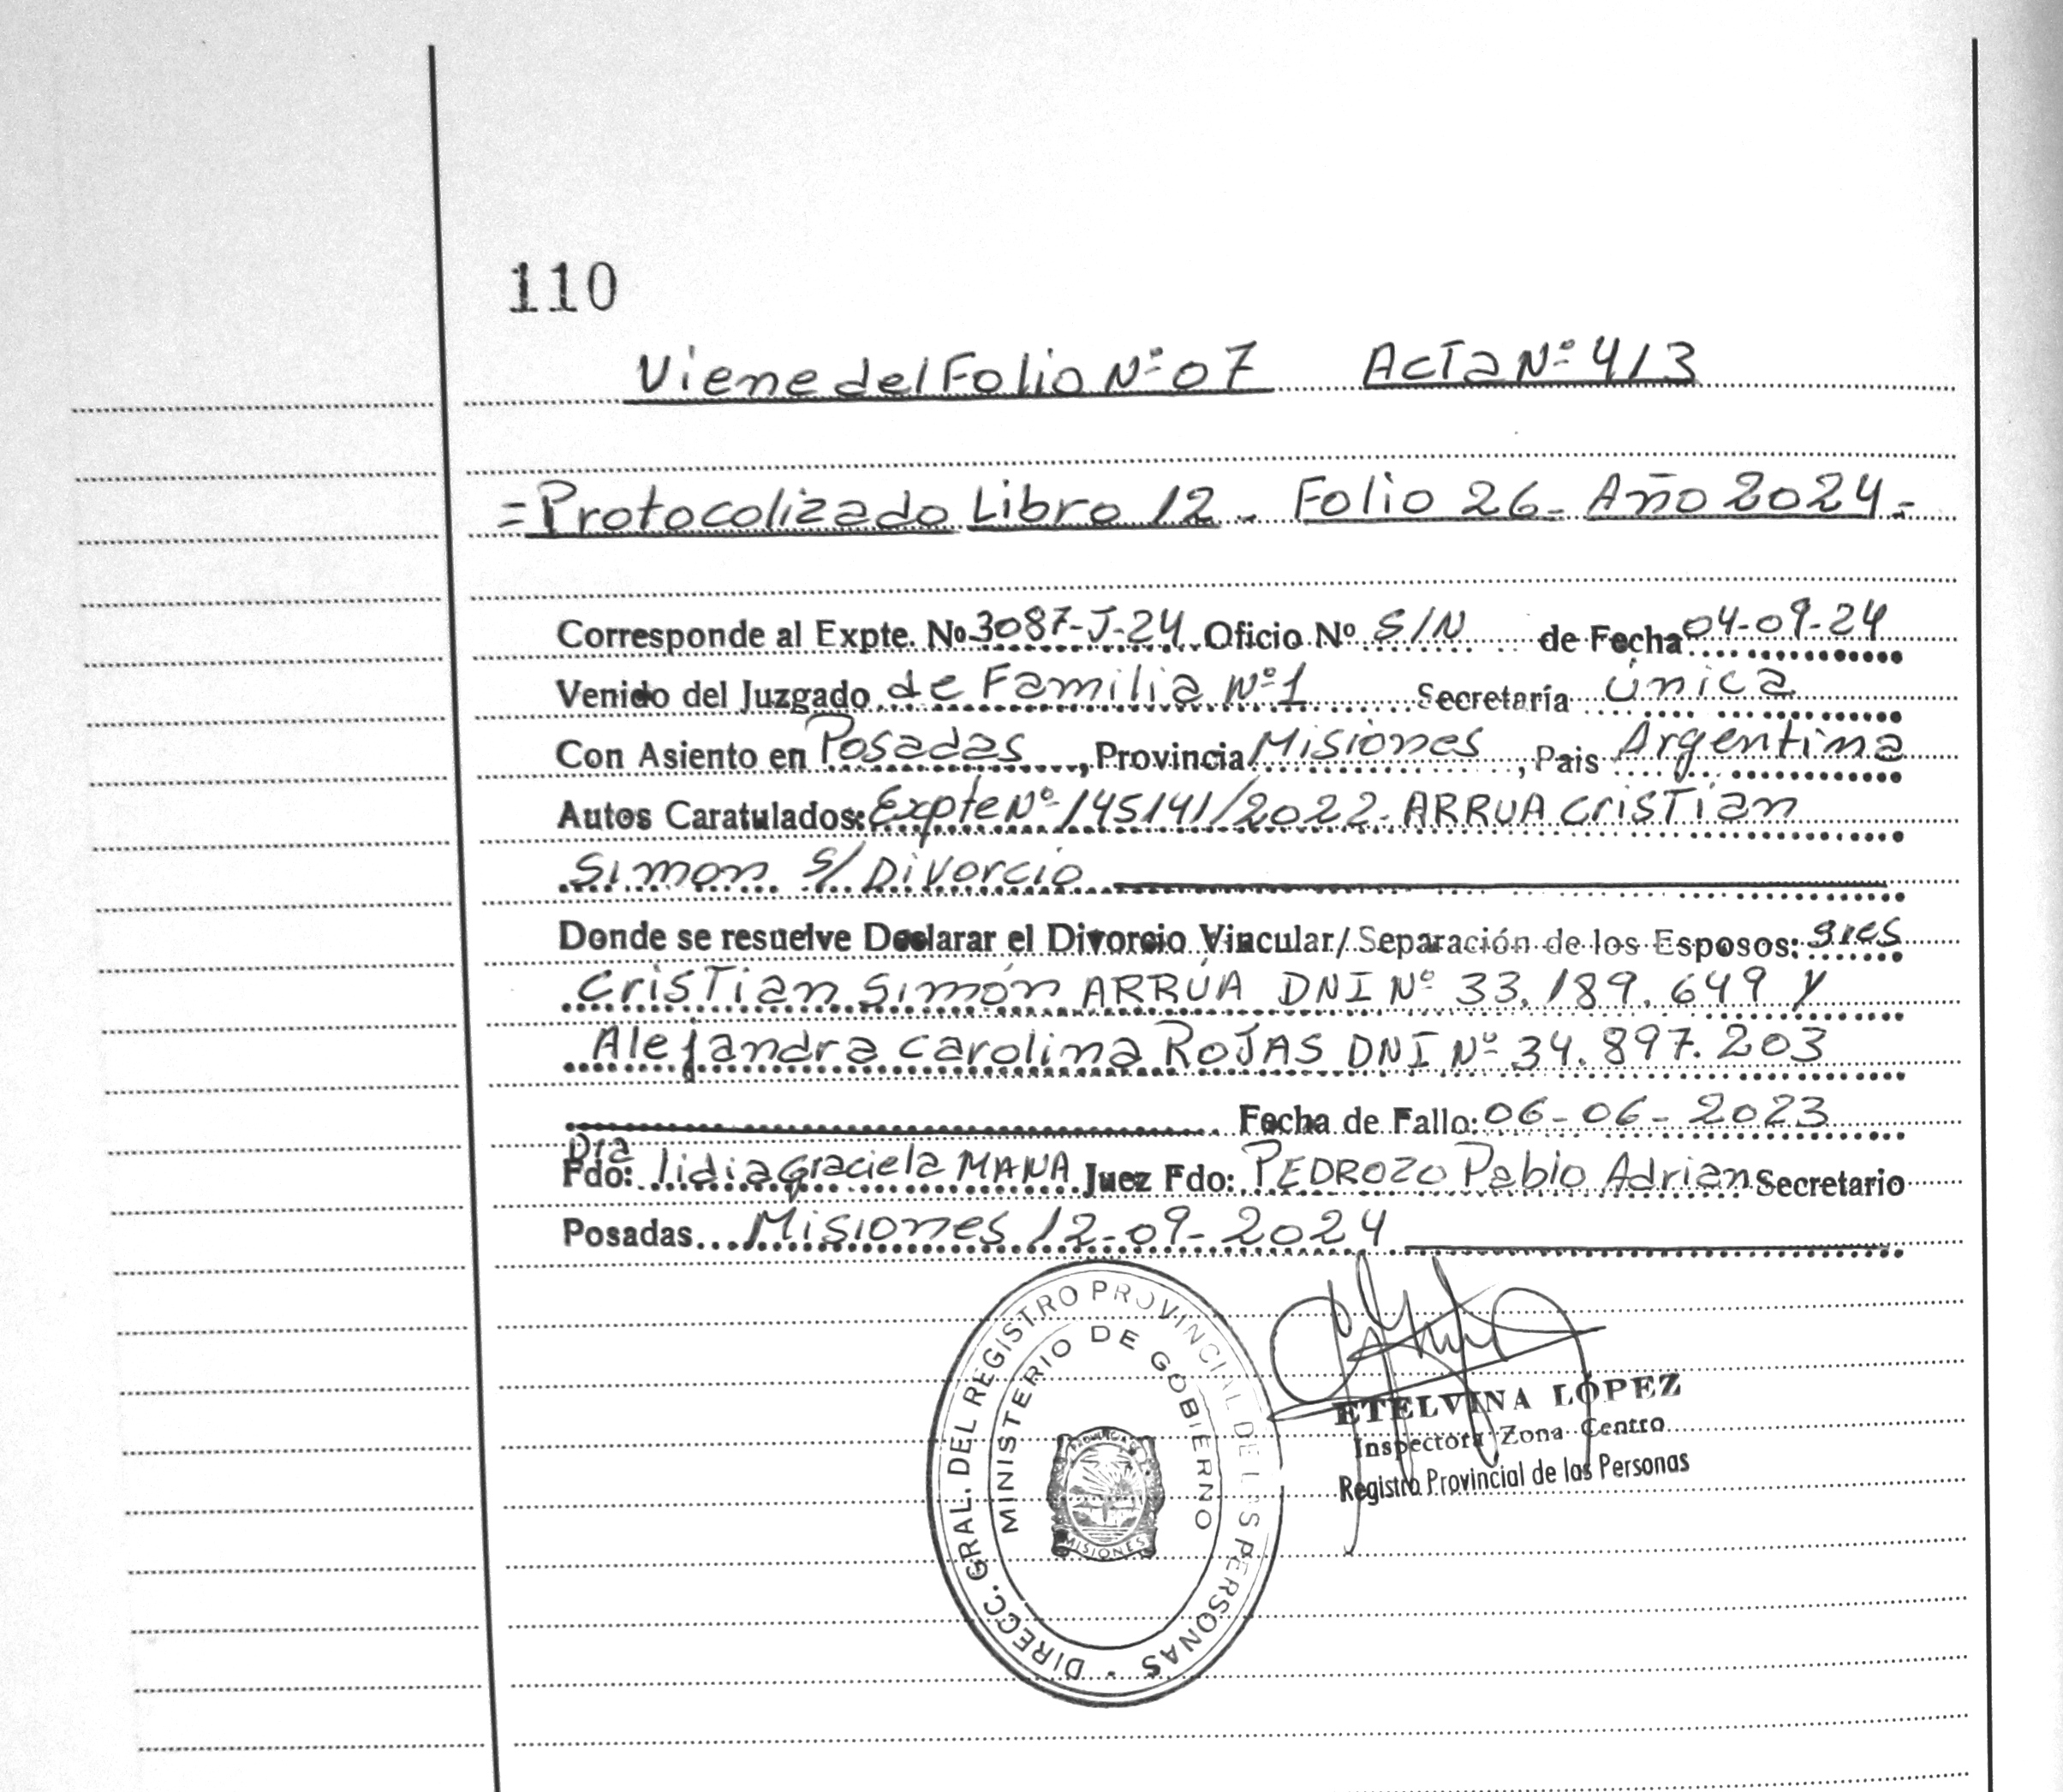 110
Viene del Folio Nº 07 Acta Nº 413
=Protocolizado Libro 12 - Folio 26 - Año 2024.=
Corresponde al Expte. No 3087-J-24 Oficio Nº S/N de Fecha 04-09-24
Venido del Juzgado de Familia Nº 1 Secretaría única
Con Asiento en Posadas, Provincia Misiones, Pais Argentina
Autos Caratulados: Expte Nº 145141/2022. ARRUA Cristian
Simon S/ Divorcio
Donde se resuelve Declarar el Divorcio Vincular/Separación de los Esposos: sres
Cristian Simón ARRÚA DNI Nº 33.189.649 y
Alejandra Carolina ROJAS DNI Nº 34.897.203
Fecha de Fallo: 06-06-2023
Dra
Fdo: lidia Graciela Juez Fdo: PEDROZO Pablo Adrian Secretario
Posadas Misiones 12-09-2024
DIRECC. GRAL. DEL REGISTRO PROVINCIAL DE LAS PERSONAS
MINISTERIO DE GOBIERNO
PROVINCIA DE
MISIONES
ETELVINA LÓPEZ
Inspectora Zona Centro
Registro Provincial de las Personas